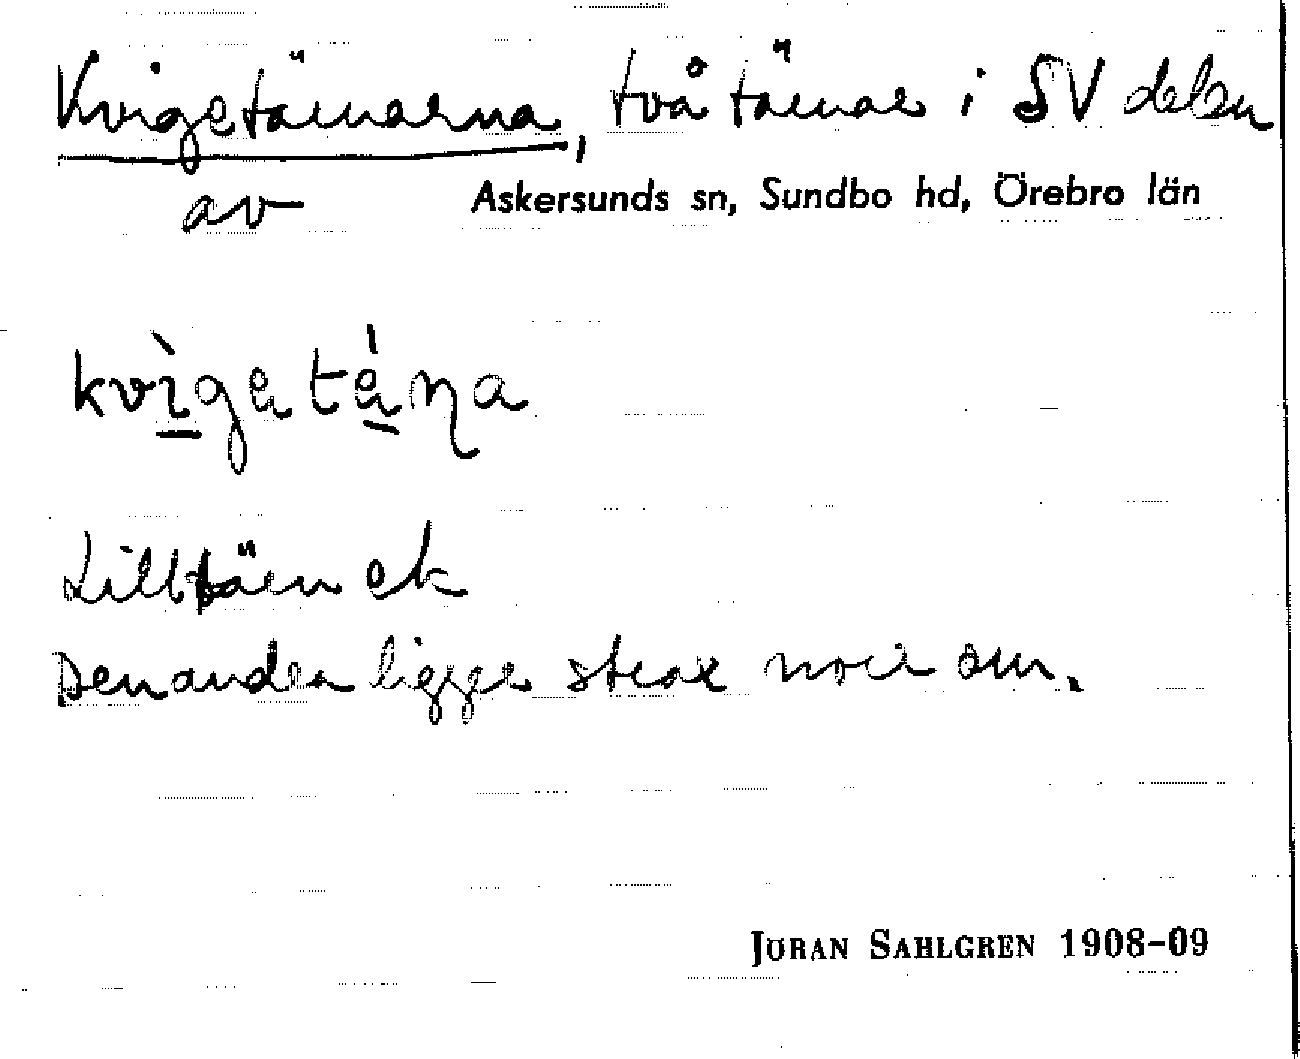 Kvigetärnarna, två tärnar i SV delen
av Askersunds sn, Sundbo hd, Örebro län
kvìgetá̱ɳa
Lilltärn ek
Den andra ligger strax norr om.
JÖRAN SAHLGREN 1908-09